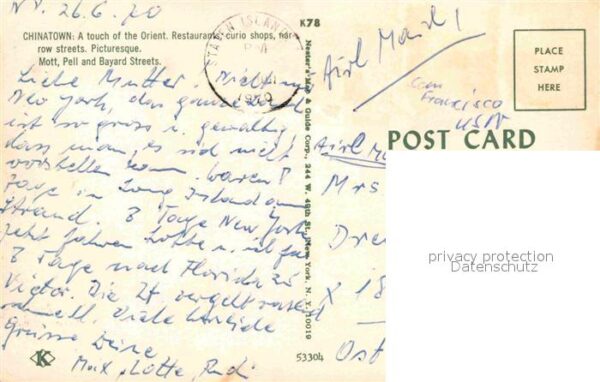 NY. 26.6.70
CHINATOWN: A touch of the Orient. Restaurants, curio shops, nar-
row streets. Picturesque.
Mott, Pell and Bayard Streets.
Liebe Mutter,
New York, das ganze
ist so gross u. gewaltig,
dass man es sich nicht
vorstellen kann. Waren 8
Tage in Long Island am
Strand. 8 Tage New York
jetzt fahren Lotte u. ich für
8 Tage nach Florida zu
Victor. Die Zt vergeht rasend
schnell. Viele herzliche
Grüsse Deine
Max, Lotte, Rudi
K
STATEN ISLAND
PM
K78
Nester's Map & Guide Corp., 244 W. 49th St., New York, N. Y. 10019
53304
Airl Mail!
San
Francisco
USA
PLACE
STAMP
HERE
POST CARD
Mrs
Dre
X 18
Ost
privacy protection
Datenschutz